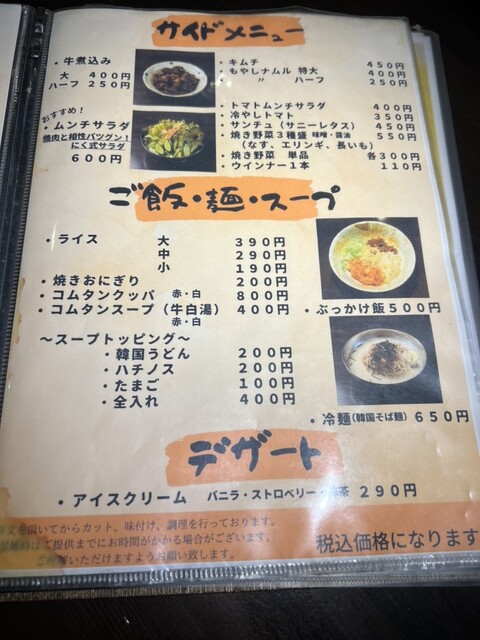 サイドメニュー
・牛煮込み
大 400円
ハーフ 250円
・キムチ 450円
・もやしナムル 特大 400円
〃 ハーフ 250円
おすすめ！
・ムンチサラダ
焼肉と相性バツグン！
にく式サラダ
600円
・トマトムンチサラダ 400円
・冷やしトマト 350円
・サンチュ（サニーレタス） 450円
・焼き野菜３種盛 味噌・醤油 550円
（なす、エリンギ、長いも）
・焼き野菜 単品 各300円
・ウインナー１本 110円
ご飯・麺・スープ
・ライス 大 390円
中 290円
小 190円
・焼きおにぎり 200円
・コムタンクッパ 赤・白 800円
・コムタンスープ（牛白湯） 400円
赤・白
・ぶっかけ飯500円
～スープトッピング～
・韓国うどん 200円
・ハチノス 200円
・たまご 100円
・全入れ 400円
・冷麺(韓国そば麺) 650円
デザート
・アイスクリーム バニラ・ストロベリー 茶 290円
文を頂いてからカット、味付け、調理を行っております。
はご提供までにお時間がかかる場合がございます。
いただけますようお願い致します。
税込価格になります